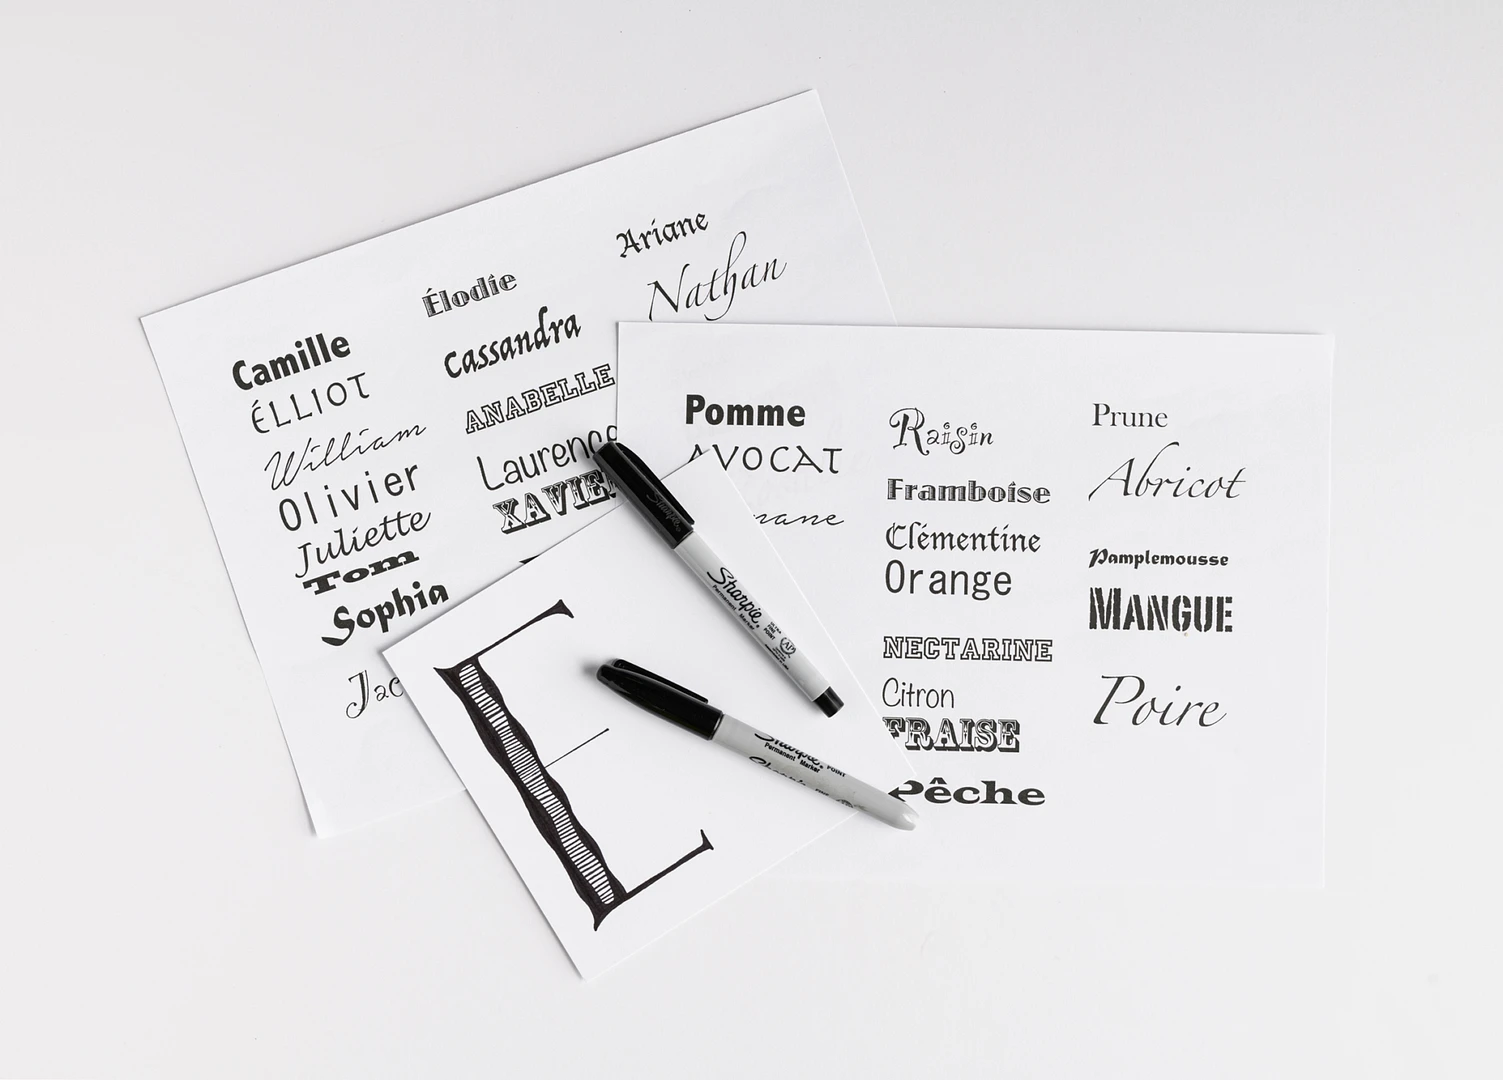 Camille
ÉLLIOT
William
Olivier
Juliette
Tom
Sophia
Élodie
Cassandra
ANABELLE
Laurence
XAVIE
Ariane
Nathan
Pomme
AVOCAT
Raisin
Framboise
Clémentine
Orange
NECTARINE
Citron
FRAISE
Pêche
Prune
Abricot
Pamplemousse
MANGUE
Poire
E
Sharpie
Permanent Marker
ULTRA FINE POINT
AP
Sharpie
Permanent Marker
POINT